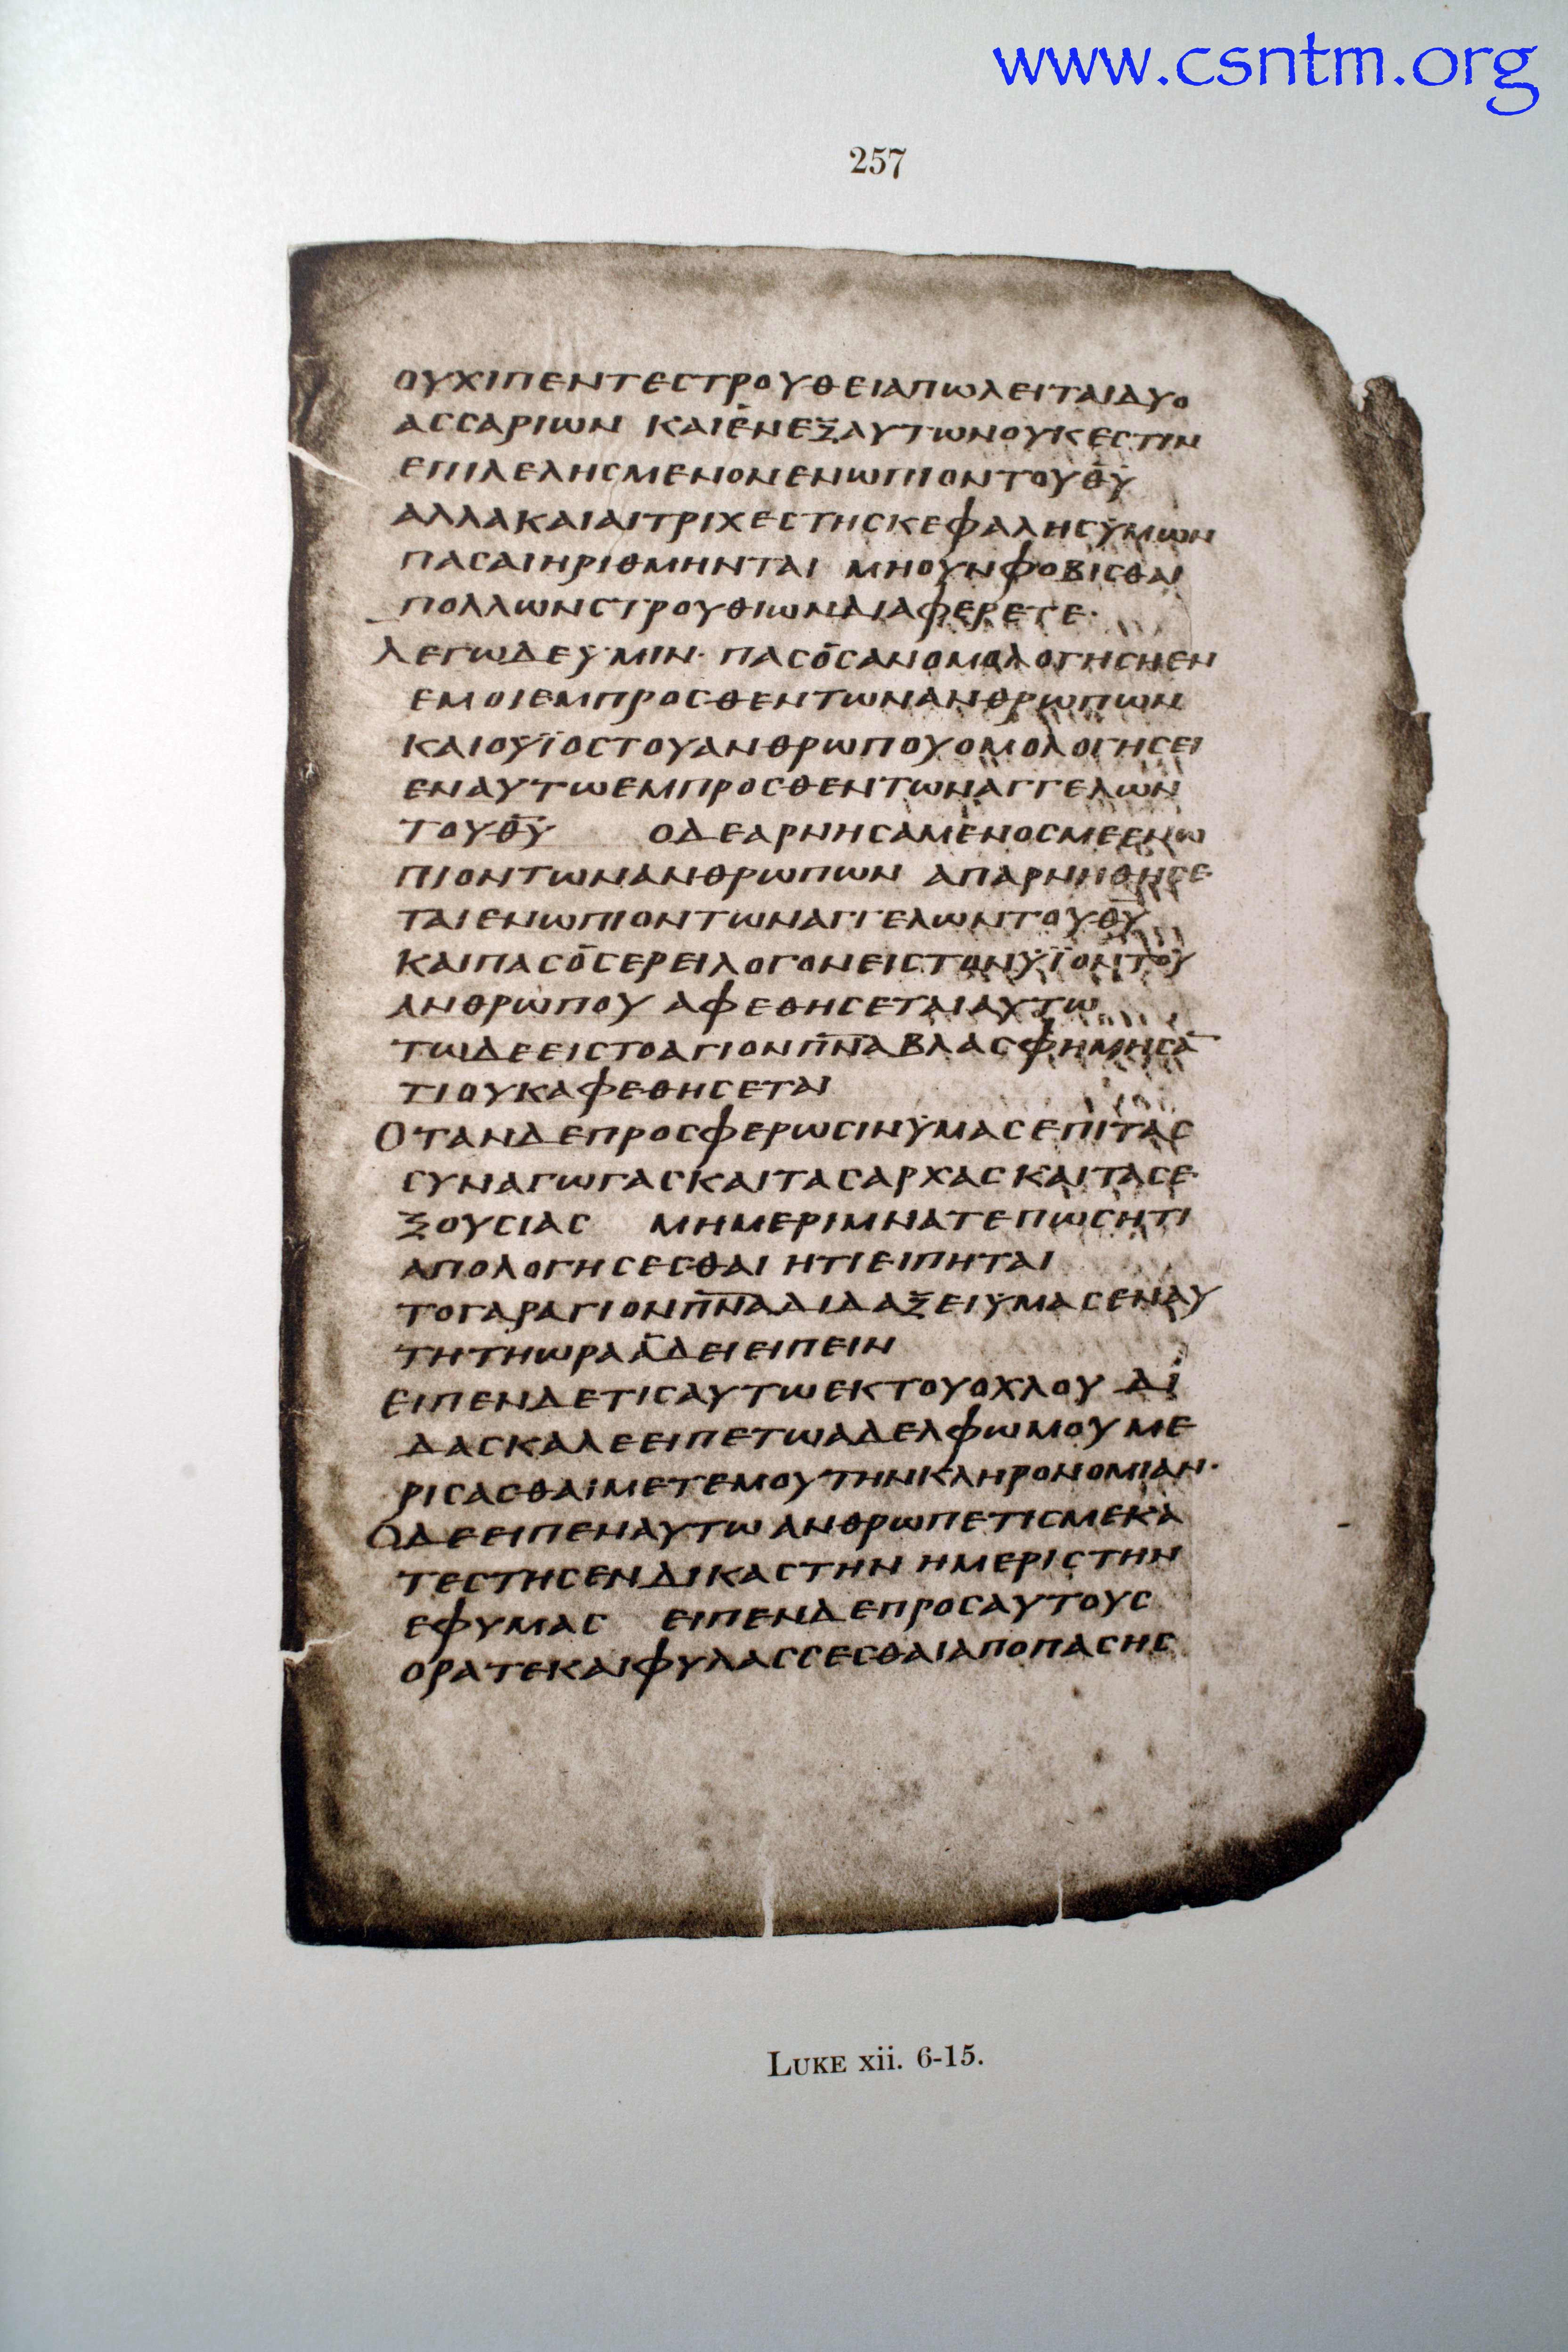 www.csntm.org
257
ΟΥΧΙΠΕΝΤΕΣΤΡΟΥΘΕΙΑΠΩΛΕΙΤΑΙΔΥΟ
ΑΣΣΑΡΙΩΝ ΚΑΙΕΝΕΞΑΥΤΩΝΟΥΚΕΣΤΙΝ
ΕΠΙΛΕΛΗΣΜΕΝΟΝΕΝΩΠΙΟΝΤΟΥΘ̅Υ̅
ΑΛΛΑΚΑΙΑΙΤΡΙΧΕΣΤΗΣΚΕΦΑΛΗΣΫΜΩΝ
ΠΑΣΑΙΗΡΙΘΜΗΝΤΑΙ ΜΗΟΥΝΦΟΒΙΣΘΑΙ
ΠΟΛΛΩΝΣΤΡΟΥΘΙΩΝΔΙΑΦΕΡΕΤΕ·
ΛΕΓΩΔΕΫΜΙΝ· ΠΑΣΟΣΑΝΟΜΟΛΟΓΗΣΗΕΝ
ΕΜΟΙΕΜΠΡΟΣΘΕΝΤΩΝΑΝΘΡΩΠΩΝ
ΚΑΙΟΥΪΟΣΤΟΥΑΝΘΡΩΠΟΥΟΜΟΛΟΓΗΣΕΙ
ΕΝΑΥΤΩΕΜΠΡΟΣΘΕΝΤΩΝΑΓΓΕΛΩΝ
ΤΟΥΘ̅Υ̅ ΟΔΕΑΡΝΗΣΑΜΕΝΟΣΜΕΕΝΩ
ΠΙΟΝΤΩΝΑΝΘΡΩΠΩΝ ΑΠΑΡΝΗΘΗΣΕ
ΤΑΙΕΝΩΠΙΟΝΤΩΝΑΓΓΕΛΩΝΤΟΥΘ̅Υ̅
ΚΑΙΠΑΣΟΣΕΡΕΙΛΟΓΟΝΕΙΣΤΟΝΫΪΟΝΤΟΥ
ΑΝΘΡΩΠΟΥ ΑΦΕΘΗΣΕΤΑΙΑΥΤΩ
ΤΩΔΕΕΙΣΤΟΑΓΙΟΝΠ̅Ν̅Α̅ΒΛΑΣΦΗΜΗΣΑ̅
ΤΙΟΥΚΑΦΕΘΗΣΕΤΑΙ
ΟΤΑΝΔΕΠΡΟΣΦΕΡΩΣΙΝΫΜΑΣΕΠΙΤΑΣ
ΣΥΝΑΓΩΓΑΣΚΑΙΤΑΣΑΡΧΑΣΚΑΙΤΑΣΕ
ΞΟΥΣΙΑΣ ΜΗΜΕΡΙΜΝΑΤΕΠΩΣΗΤΙ
ΑΠΟΛΟΓΗΣΕΣΘΑΙ ΗΤΙΕΙΠΗΤΑΙ
ΤΟΓΑΡΑΓΙΟΝΠ̅Ν̅Α̅ΔΙΔΑΞΕΙΥΜΑΣΕΝΑΥ
ΤΗΤΗΩΡΑΑΔΕΙΕΙΠΕΙΝ
ΕΙΠΕΝΔΕΤΙΣΑΥΤΩΕΚΤΟΥΟΧΛΟΥ ΔΙ
ΔΑΣΚΑΛΕΕΙΠΕΤΩΑΔΕΛΦΩΜΟΥΜΕ
ΡΙΣΑΣΘΑΙΜΕΤΕΜΟΥΤΗΝΚΛΗΡΟΝΟΜΙΑΝ·
ΟΔΕΕΙΠΕΝΑΥΤΩ ΑΝΘΡΩΠΕΤΙΣΜΕΚΑ
ΤΕΣΤΗΣΕΝΔΙΚΑΣΤΗΝ ΗΜΕΡΙΣΤΗΝ
ΕΦΥΜΑΣ ΕΙΠΕΝΔΕΠΡΟΣΑΥΤΟΥΣ
ΟΡΑΤΕΚΑΙΦΥΛΑΣΣΕΣΘΑΙΑΠΟΠΑΣΗΣ
LUKE xii. 6-15.